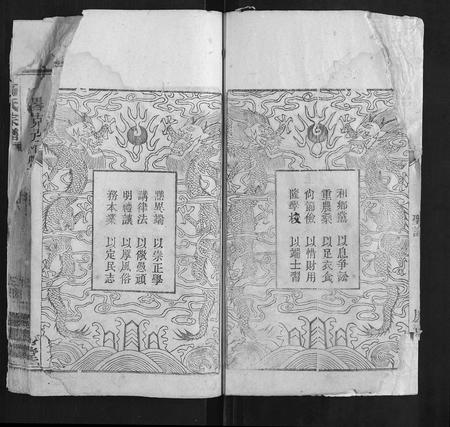 和鄉黨 以息爭訟
重農桑 以足衣食
尚節儉 以惜財用
隆學校 以端士習
黜異端 以崇正學
講律法 以儆愚頑
明禮讓 以厚風俗
務本業 以定民志